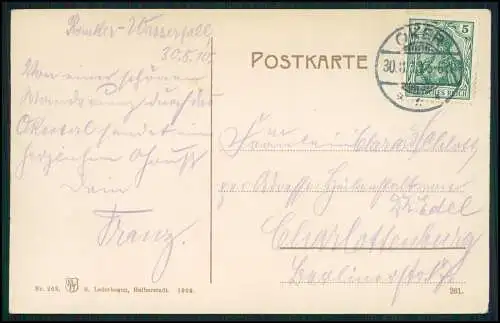 Romker-Wasserfall,
30.8.10.
Von einer schönen
Wanderung durch das
Okertal sendet einen
herzlichen Gruß
Dein
Franz.
POSTKARTE
5
OKER
30.
REICH
Fräulein Clara
per Adresse
Dr. Edel
Charlottenburg
Berlinerstr.
Nr. 268.
R. Lederbogen, Halberstadt. 1908.
261.